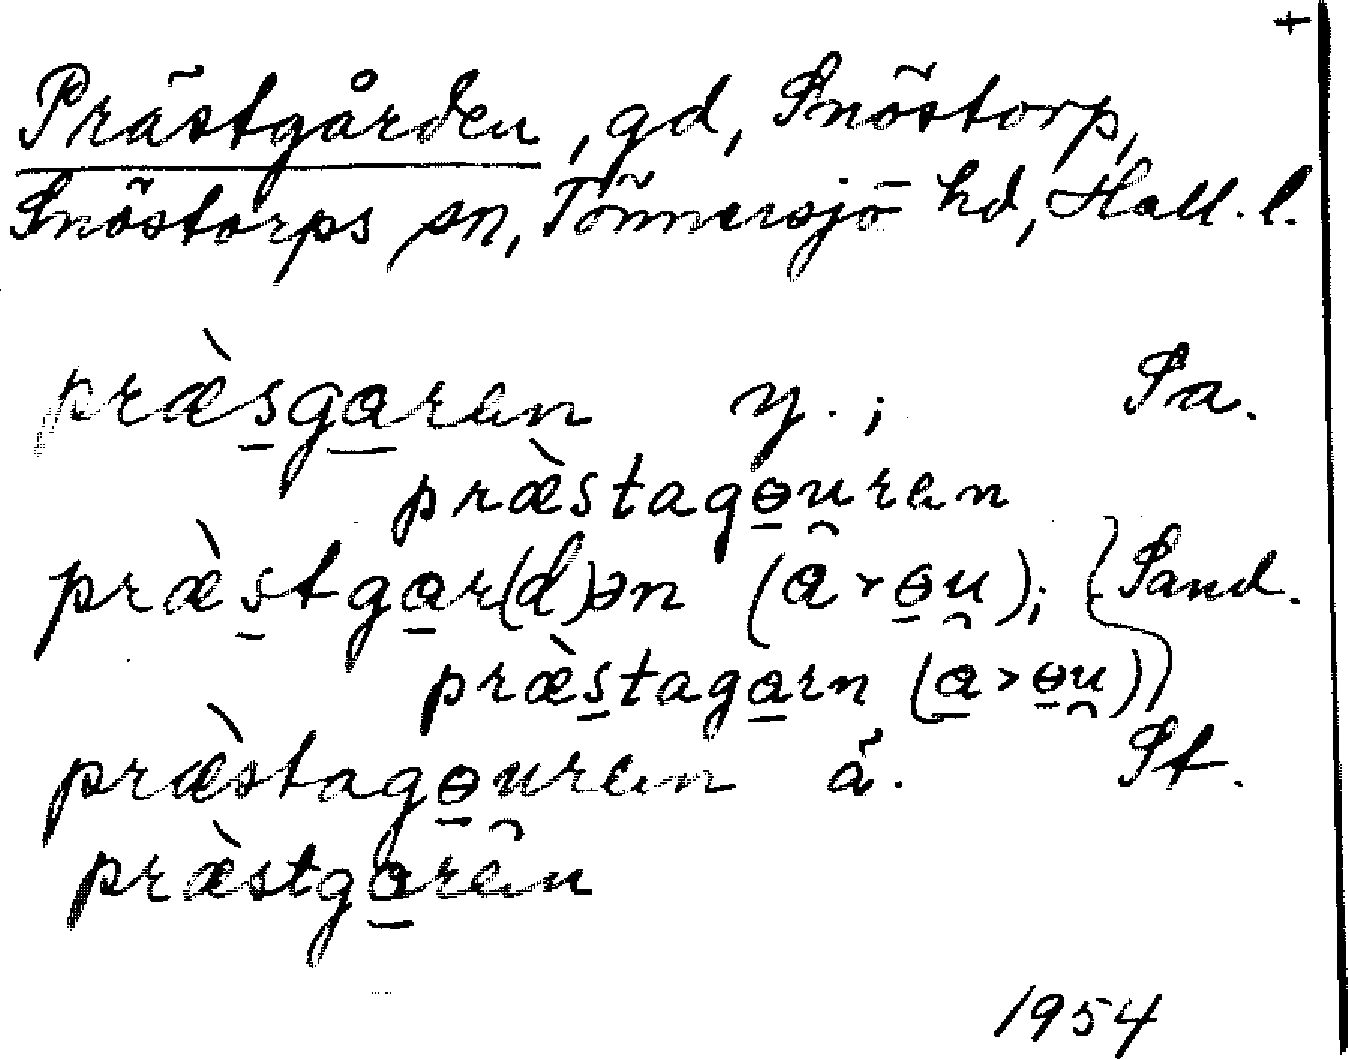 +
Prästgården, gd, Snöstorp,
Snöstorps sn, Tönnersjö hd, Hall. l.
præ̀s̲ga̲ren y.; Sa.
præ̀stagɵ̲u̯ren
præ̀s̲tga̲r(d)ən (a > ɵ̲u̯); } Sand.
præ̀s̲taga̲rn (a̲ > ɵ̲u̯)
præ̀stagɵ̲u̯ren ä. St.
præ̀stga̲ren
1954